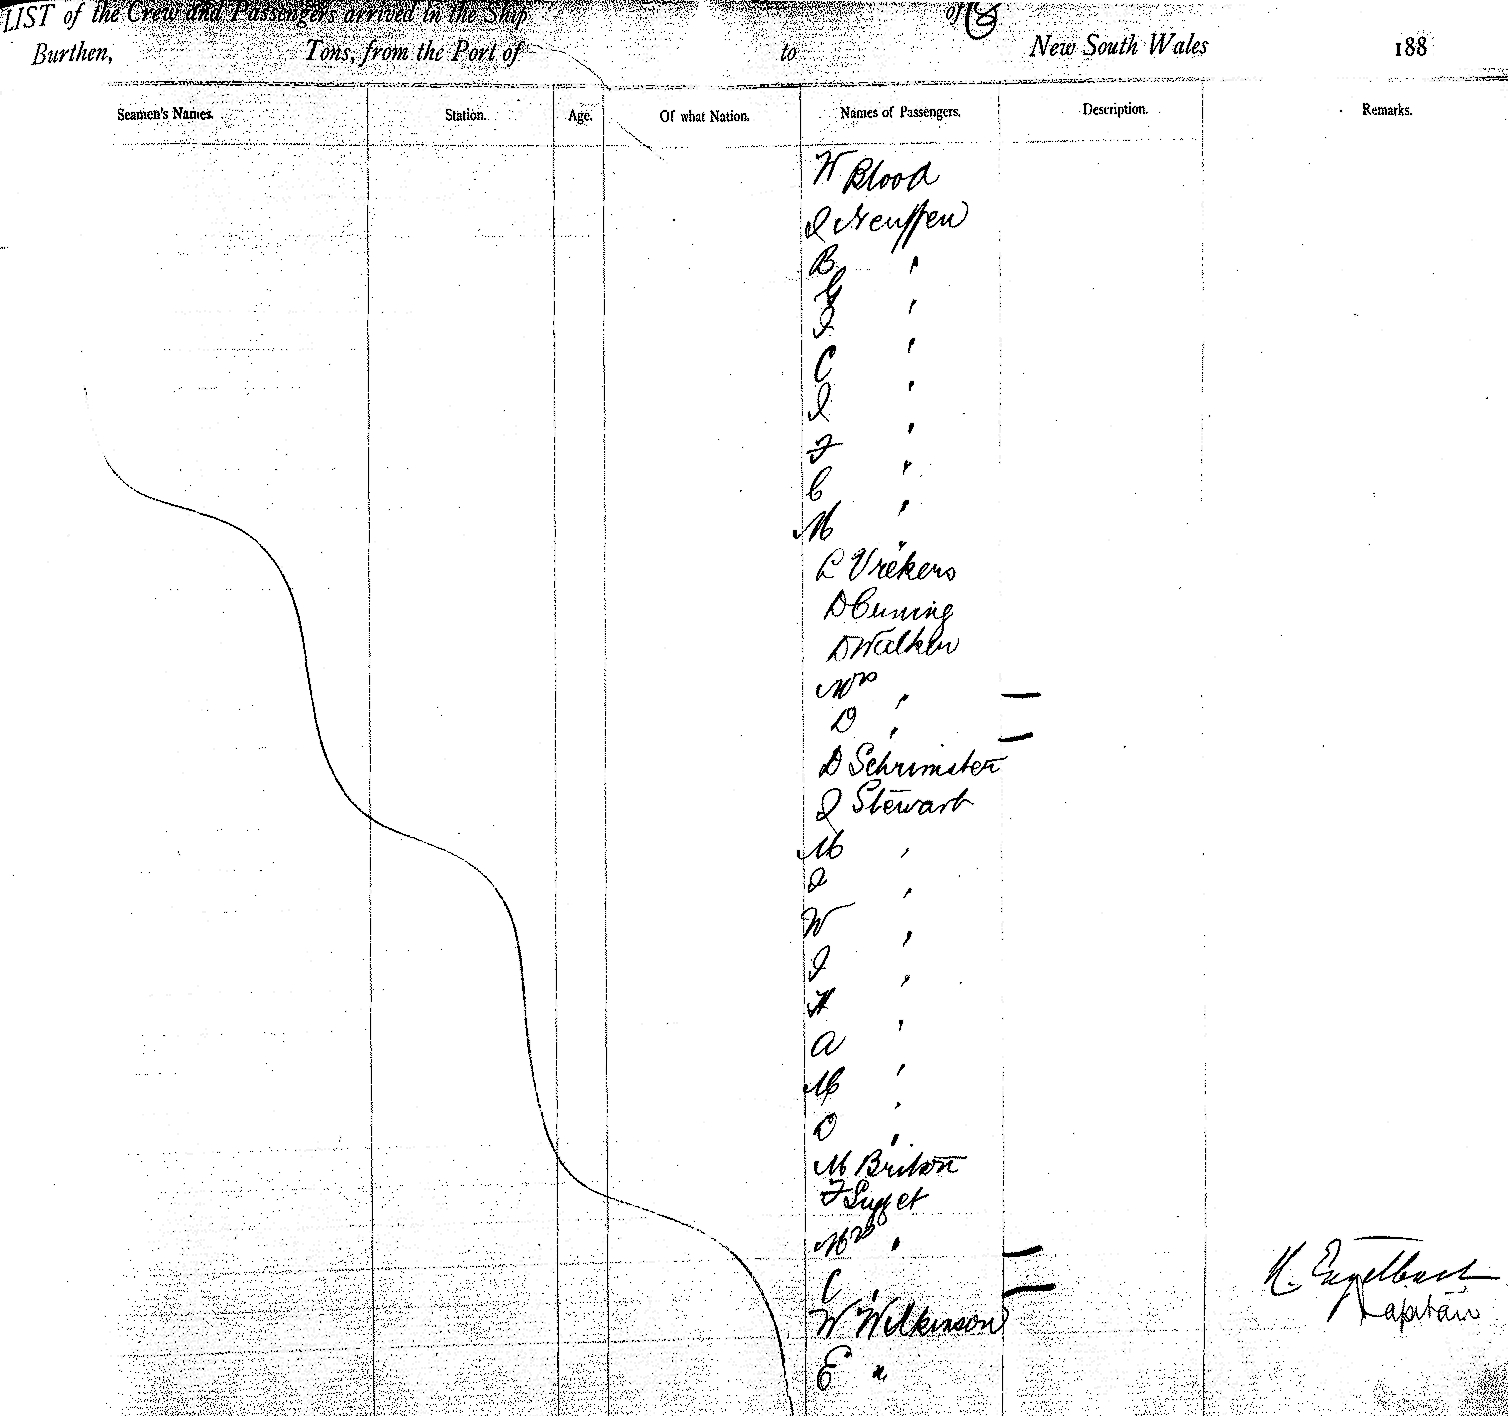 LIST of the Crew and Passengers arrived in the Ship of
Burthen, Tons, from the Port of to New South Wales 188
Seamen's Names. Station. Age. Of what Nation. Names of Passengers. Description. Remarks.
W Blood
J Neuffen
B "
"
J "
C "
J "
F "
C "
M "
L Vrekens
D Cuning
D Walker
Mrs " —
D " —
D Schrimster
J Stewart
M "
J "
W "
J "
H "
A "
M "
D "
M Briton
F Sugget
Mrs " —
C " —
H. Engelbart
Kapitän
W Wilkinson
E "